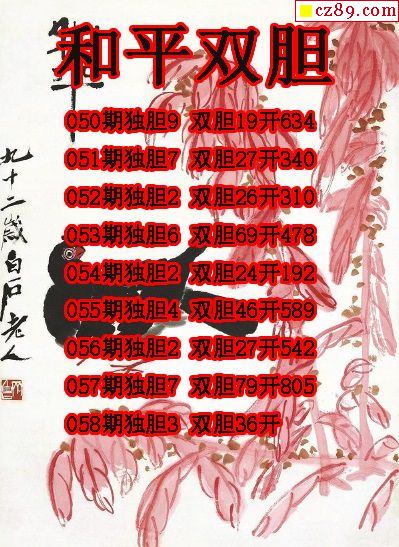 cz89.com
和平双胆
050期独胆9 双胆19开634
051期独胆7 双胆27开340
052期独胆2 双胆26开310
053期独胆6 双胆69开478
054期独胆2 双胆24开192
055期独胆4 双胆46开589
056期独胆2 双胆27开542
057期独胆7 双胆79开805
058期独胆3 双胆36开
九十二岁白石老人